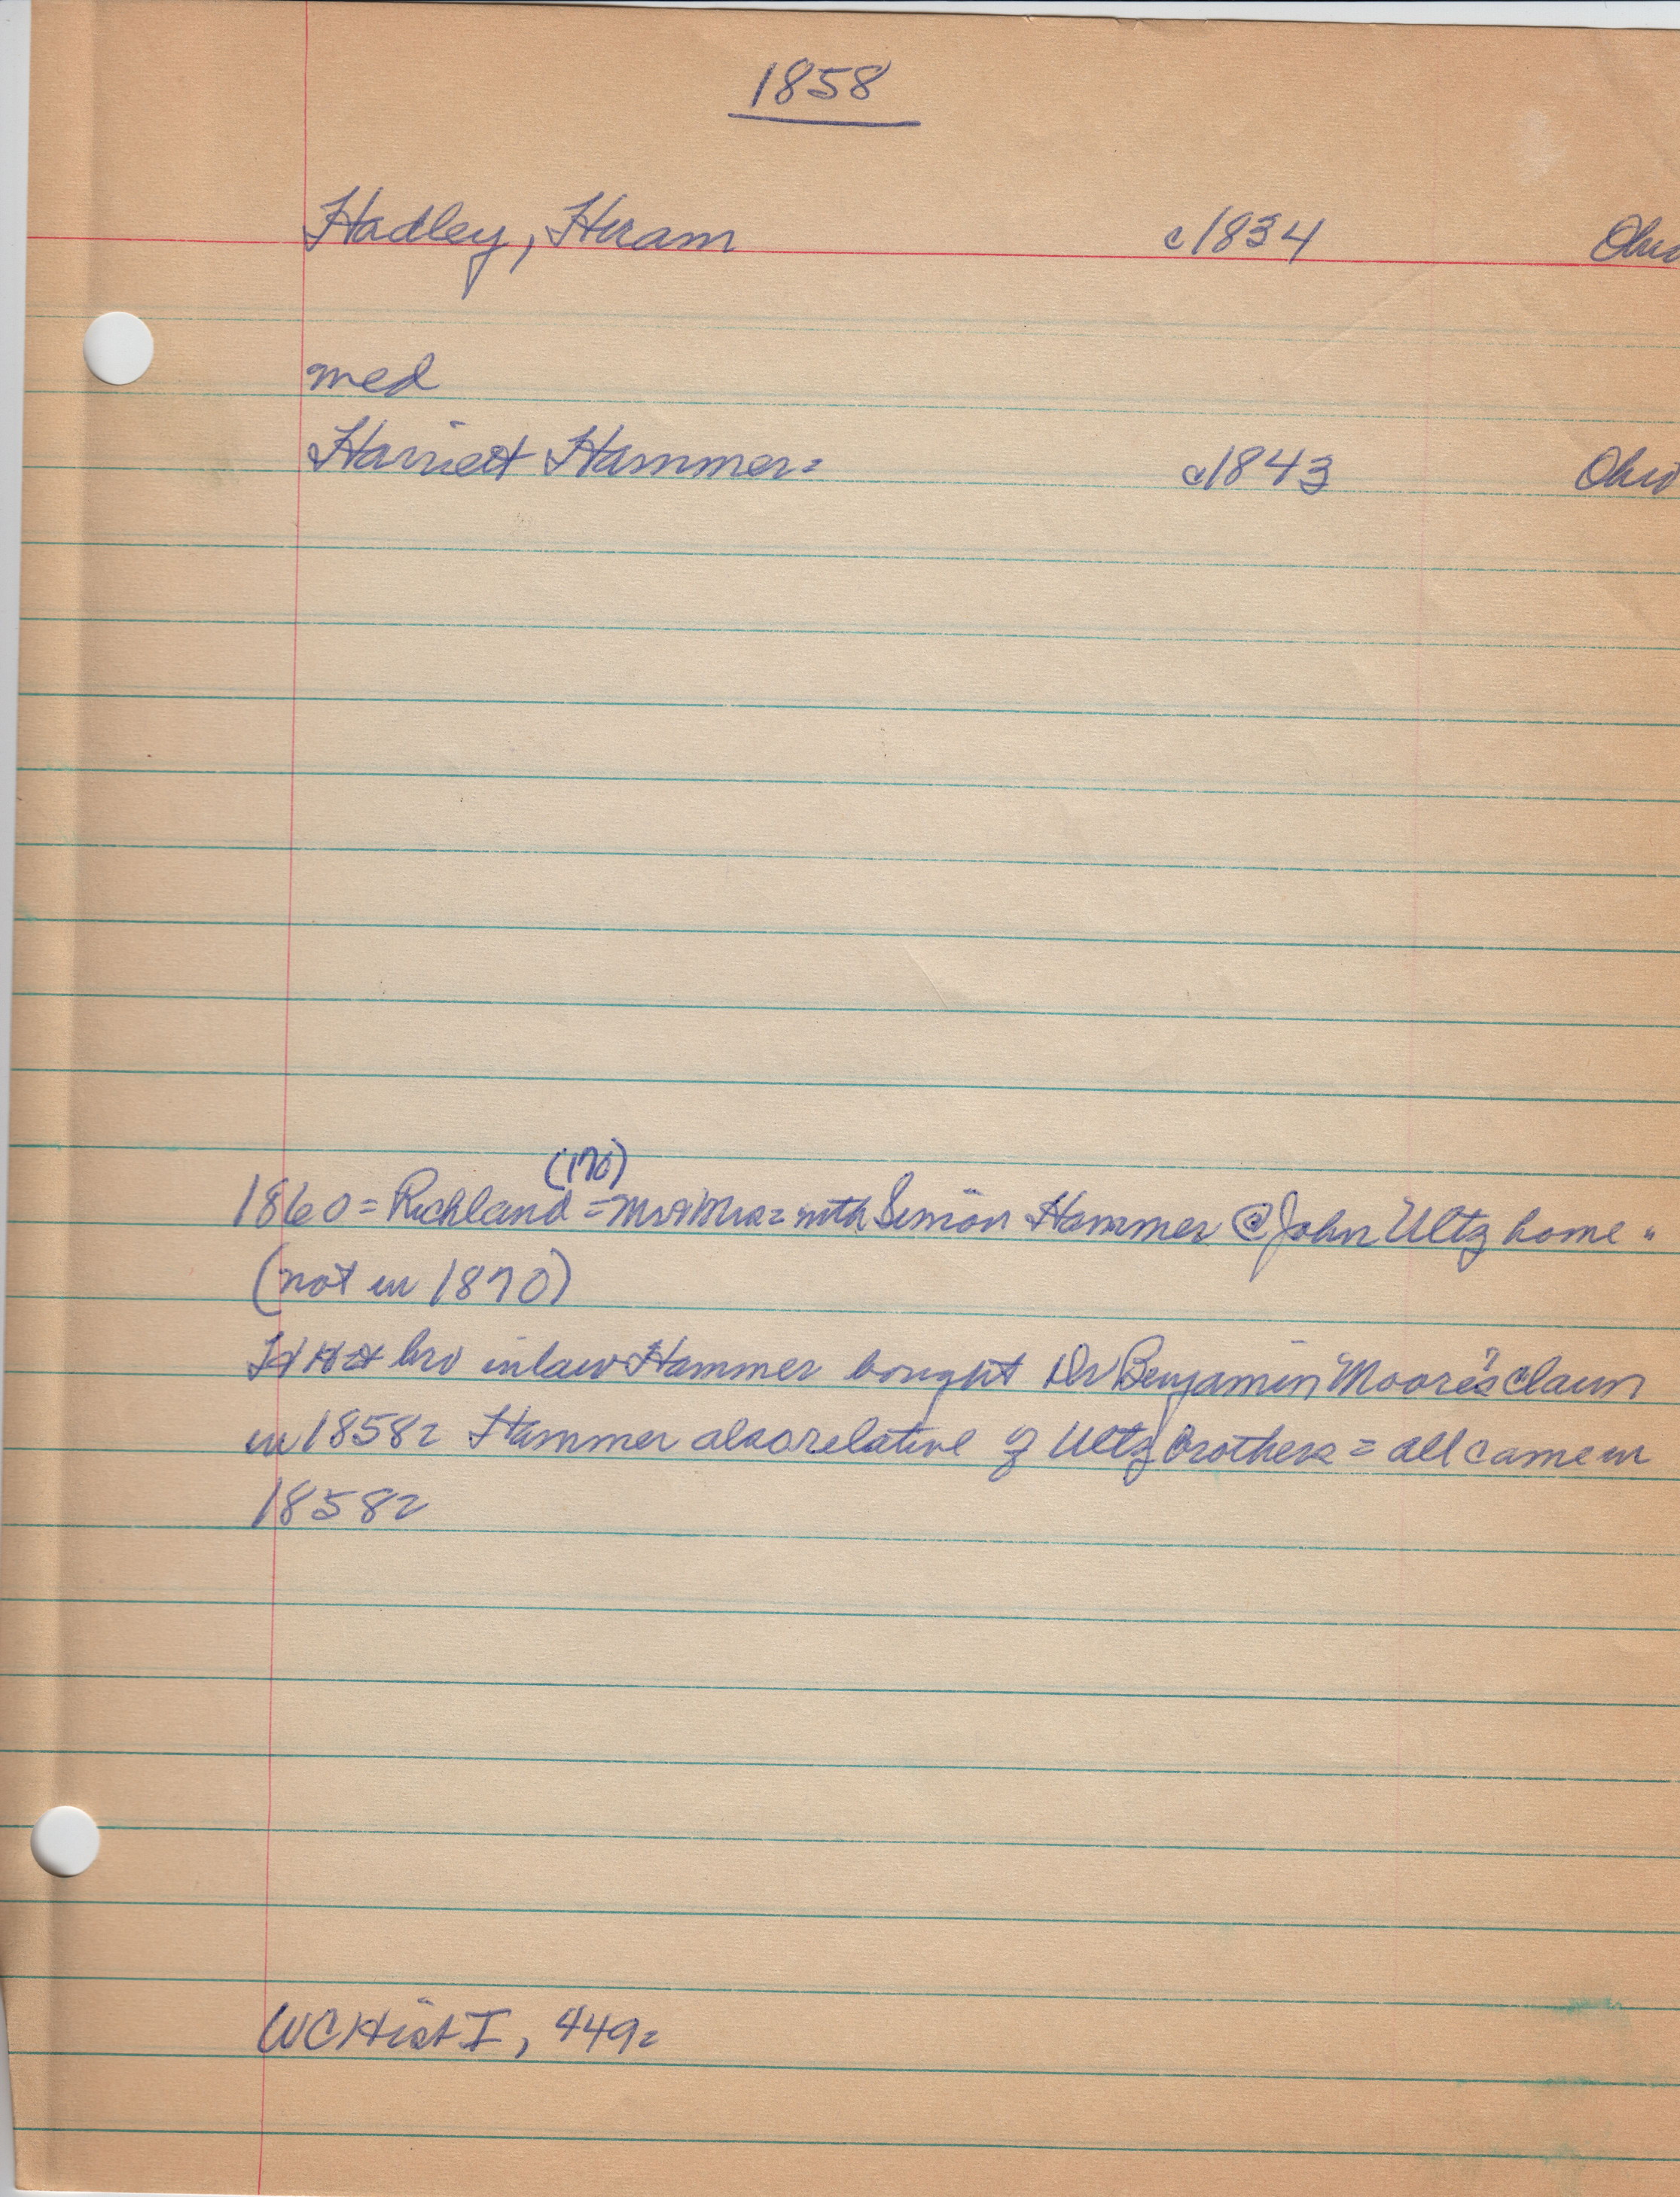 1858
Hadley, Hiram c1834 Ohio
med
Harriett Hammer= c1843 Ohio
(170)
1860 = Richland = Mr & Mrs = with Simion Hammer @ John Ultz home.
(not in 1870)
bro inlaw Hammer bought Dr Benjamin Moore's claim
in 1858= Hammer also relative of Ultz Brothers = all came in
1858=
WC Hist I, 449=